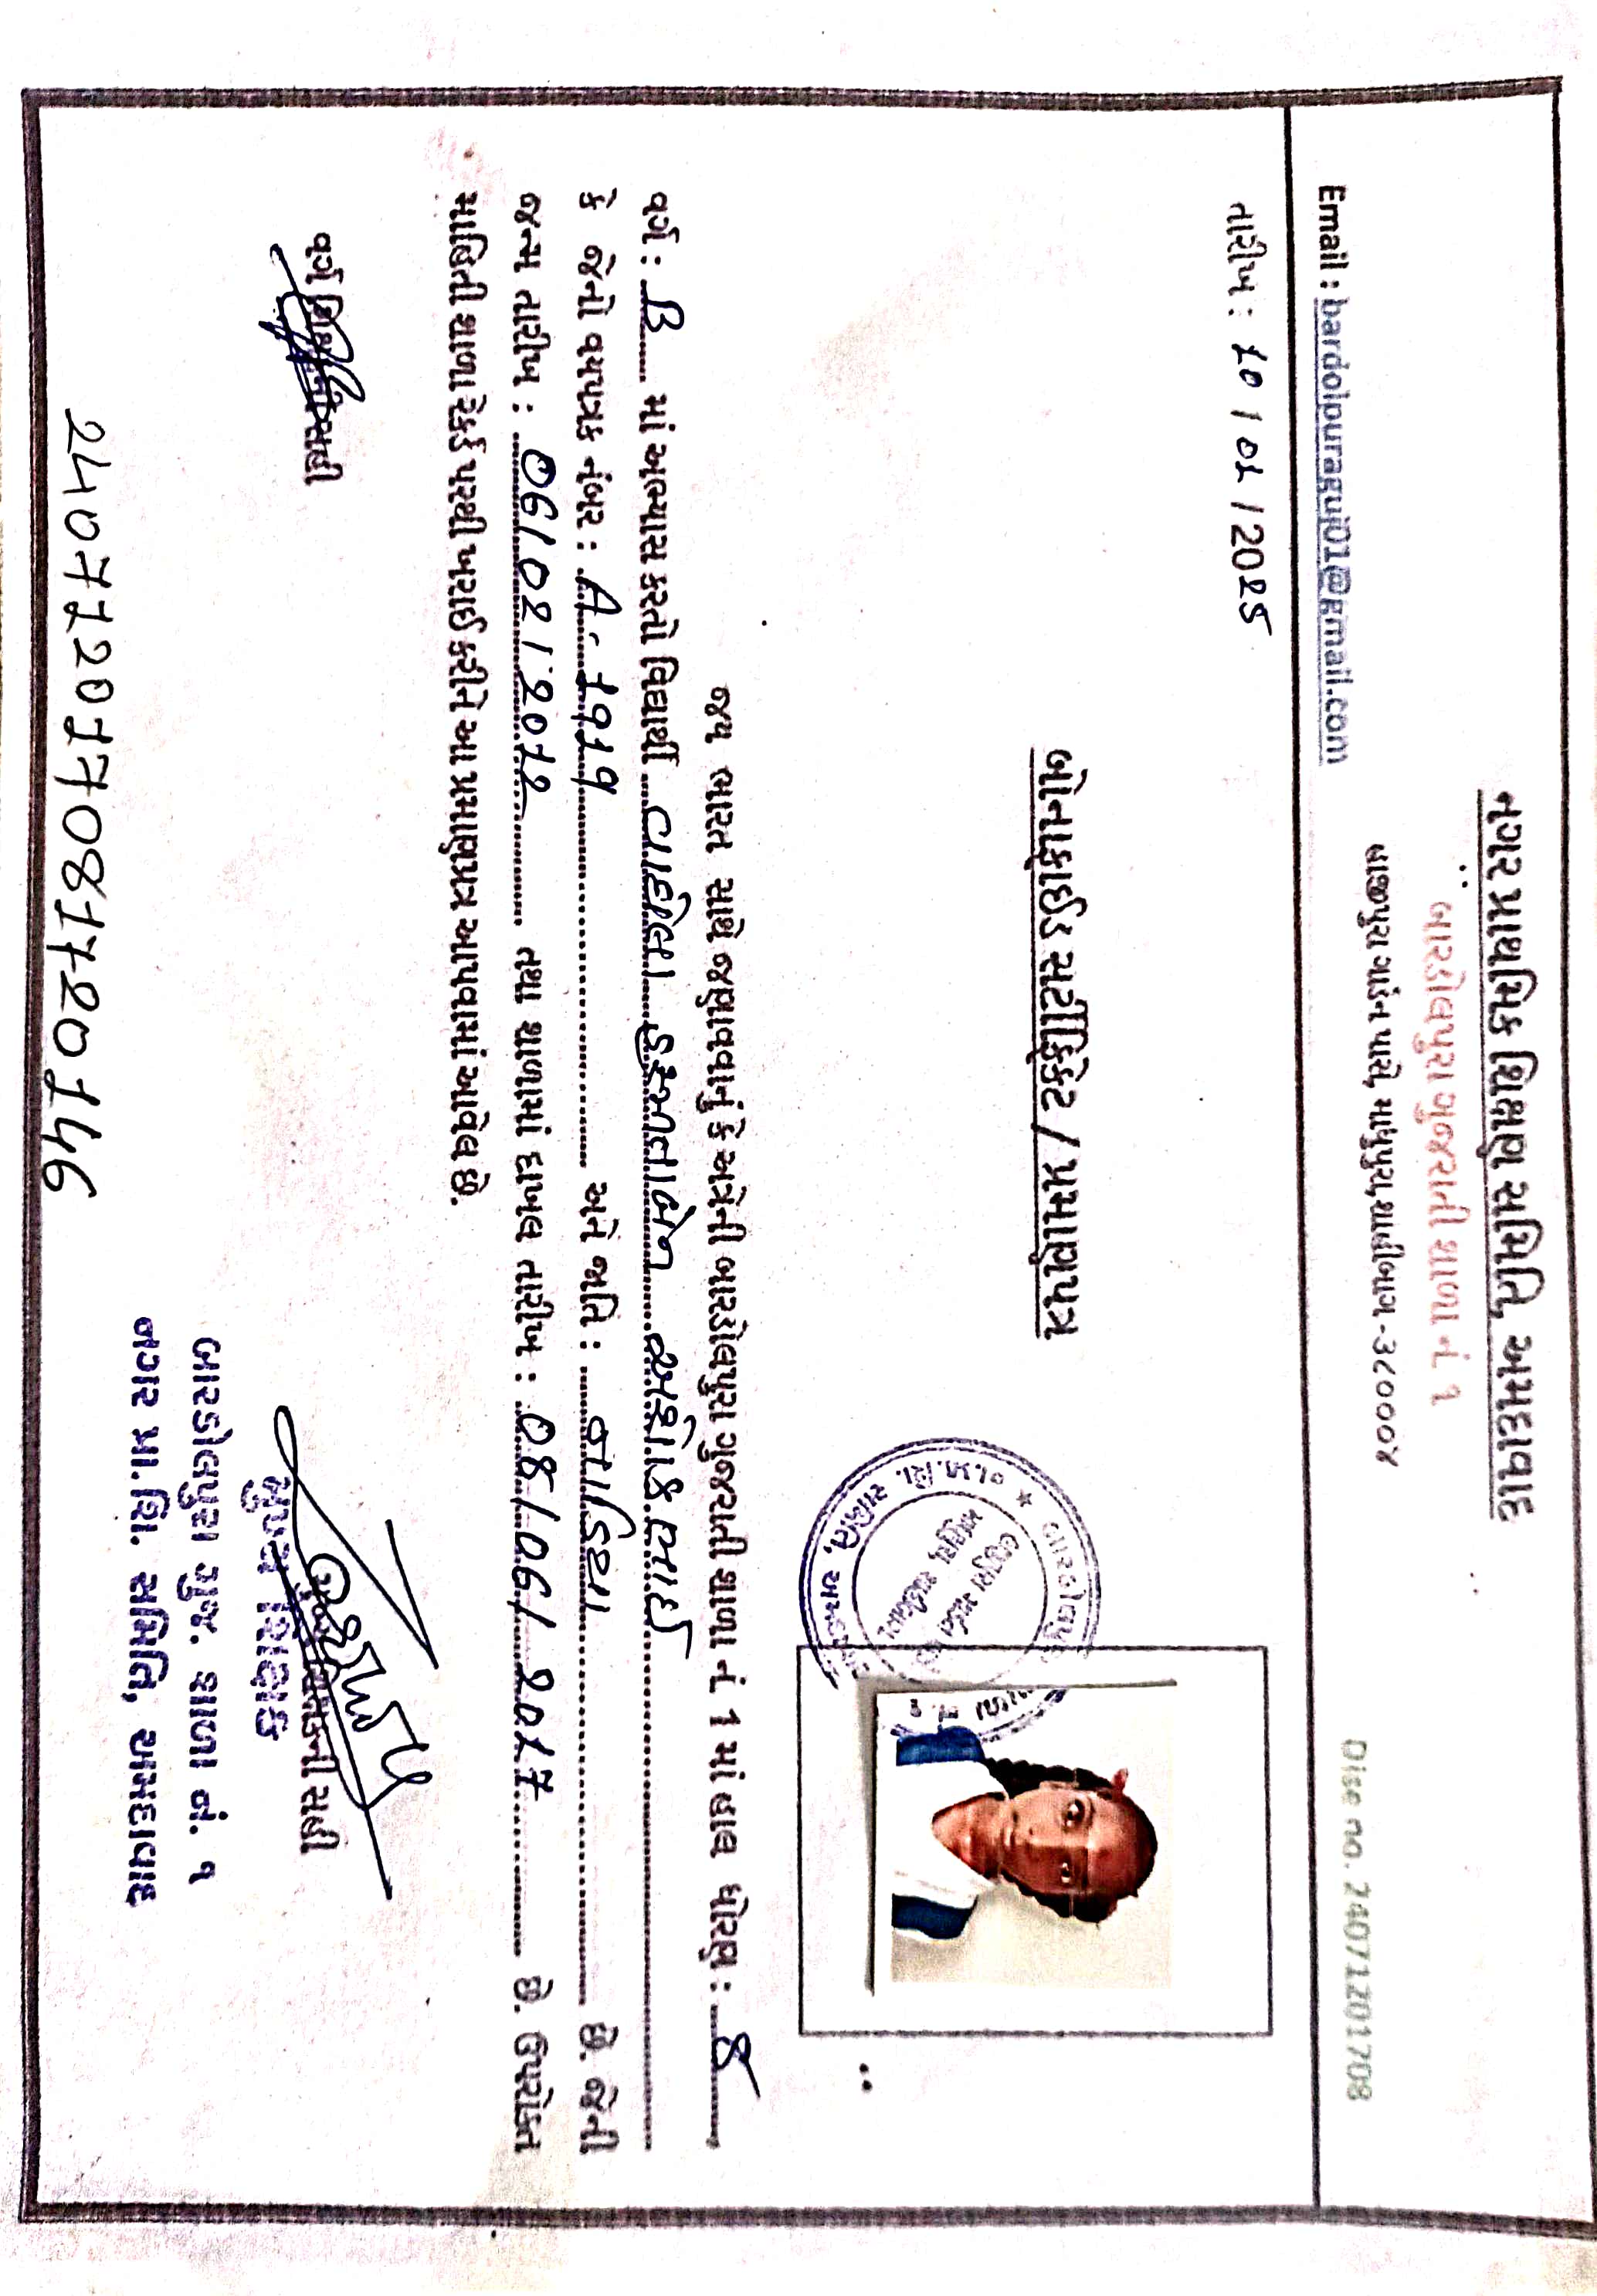 નગર પ્રાથમિક શિક્ષણ સમિતિ, અમદાવાદ
બારડોલપુરા ગુજરાતી શાળા નં. ૧
બાજીપુરા ગાર્ડન પાસે, માધુપુરા,શાહીબાગ-૩૮૦૦૦૪
Email : bardolpuraguj01@gmail.com Dise no. 24071201708
તારીખ : 10 / 01 / 2025
બોનાફાઈડ સર્ટીફિકેટ / પ્રમાણપત્ર
જય ભારત સાથે જણાવવાનું કે અત્રેની બારડોલપુરા ગુજરાતી શાળા નં 1 માં હાલ ધોરણ : 8
વર્ગ : B માં અભ્યાસ કરતો વિદ્યાર્થી વાઘેલા
કે જેનો વયપત્રક નંબર : A- અને જાતિ : છે. જેની
જન્મ તારીખ : 06/02/2012 તથા શાળામાં દાખલ તારીખ : 08/06/2017 છે. ઉપરોક્ત
માહિતી શાળા રેકર્ડ પરથી ખરાઈ કરીને આ પ્રમાણપત્ર આપવામાં આવેલ છે.
વર્ગ શિક્ષકની સહી
મુખ્ય શિક્ષકની સહી
મુખ્ય શિક્ષક
બારડોલપુરા ગુજ. શાળા નં. ૧
નગર પ્રા.શિ. સમિતિ, અમદાવાદ
240712017081720146